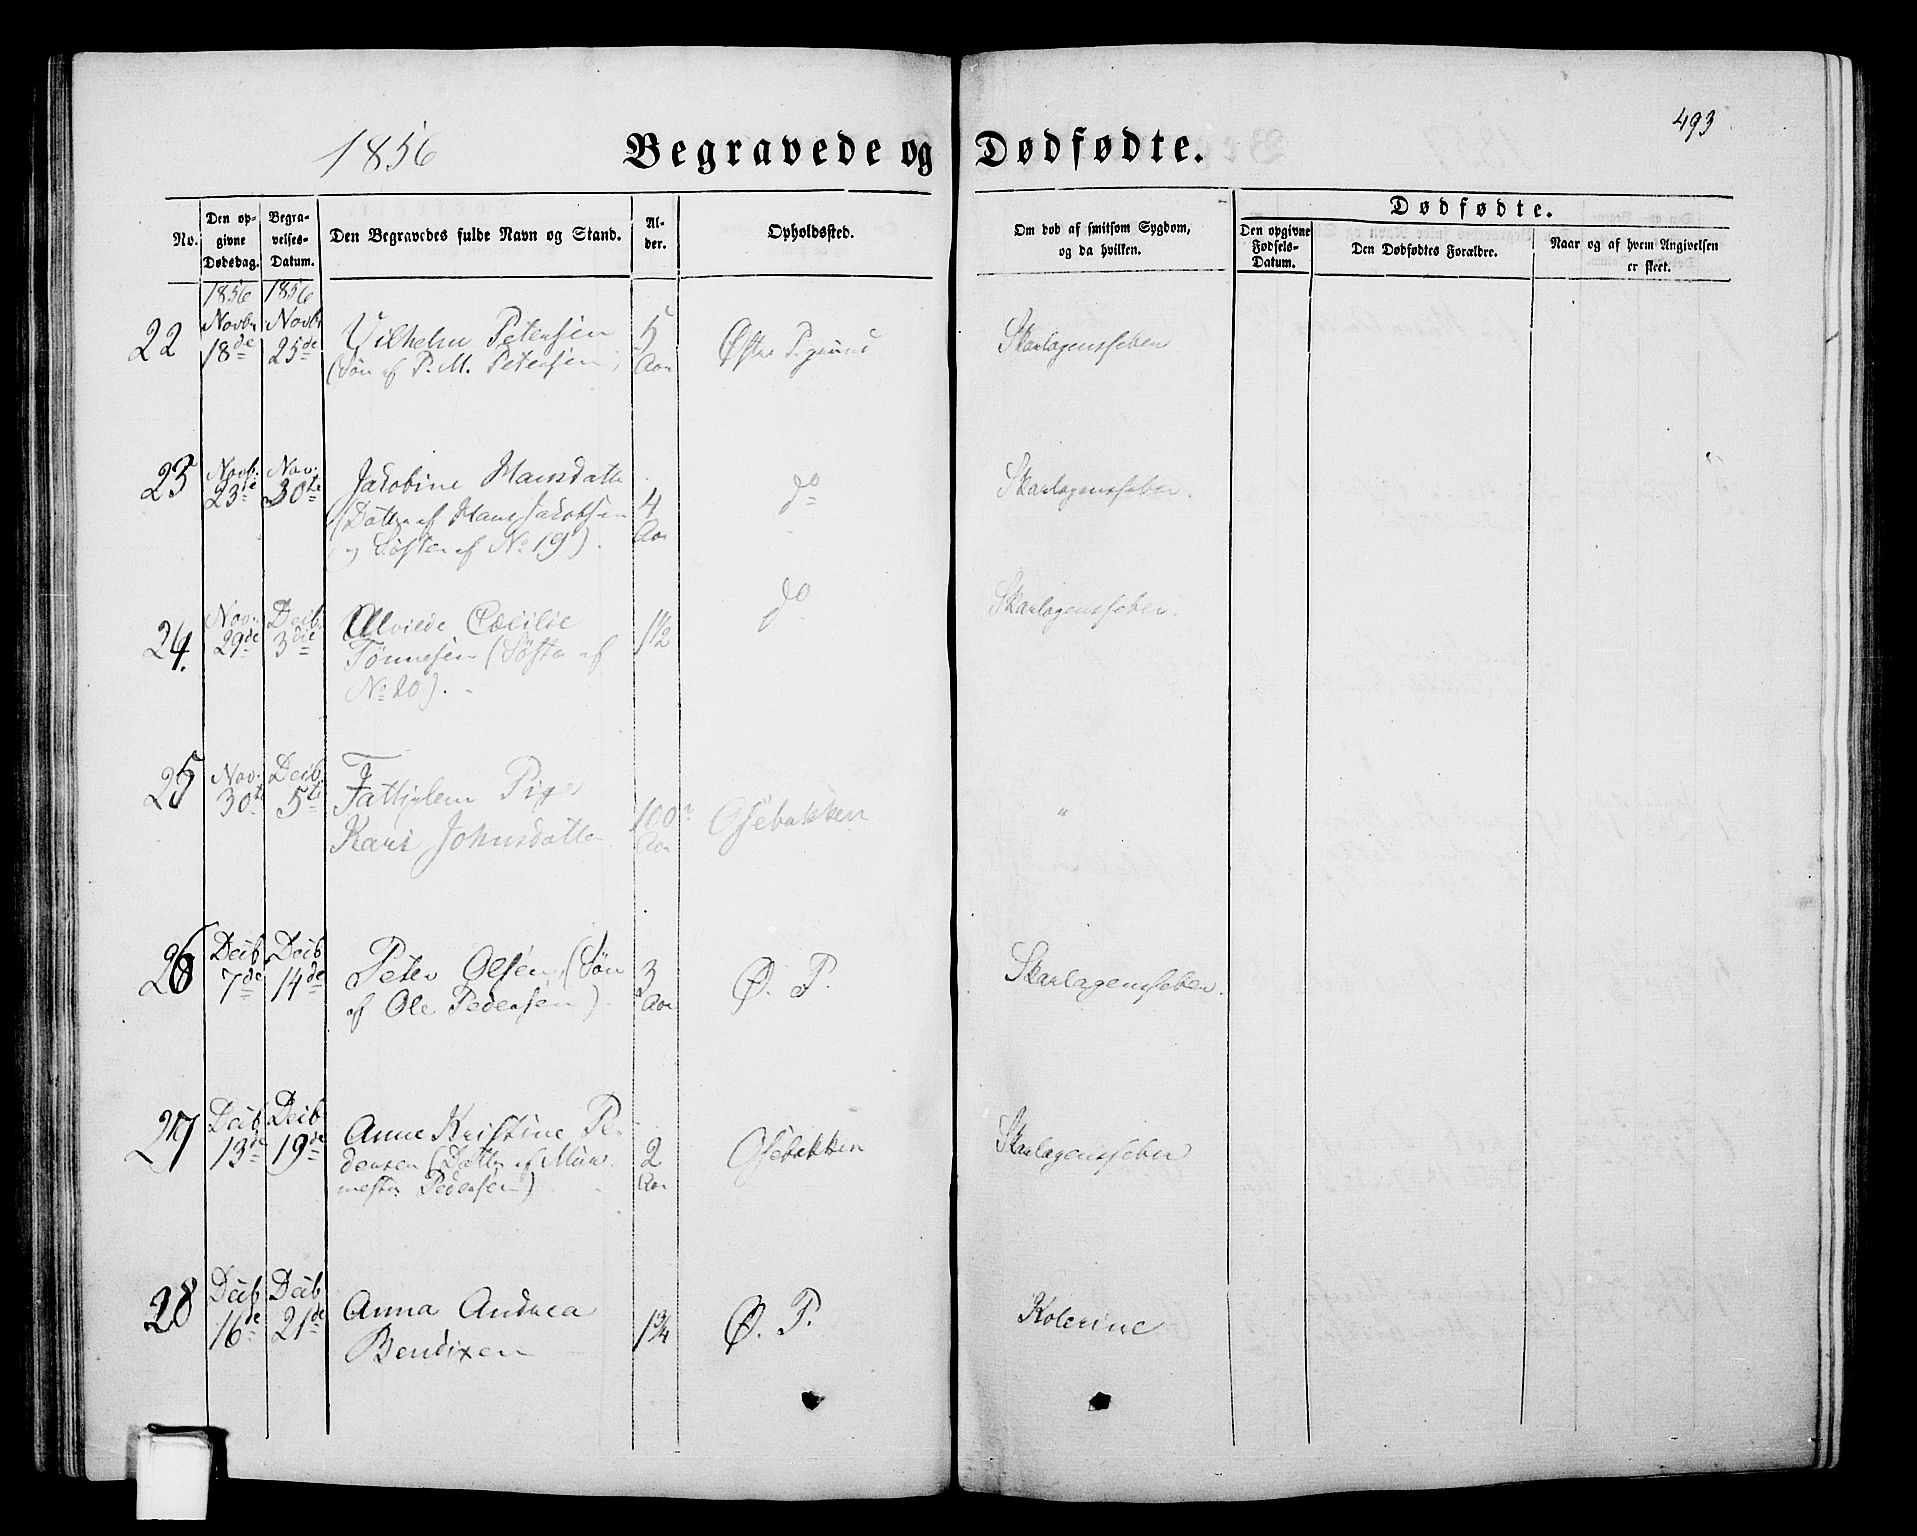 493
1856 Begravede og Dødfødte.
No.
Den op-
givne
Dødsdag.
Begra-
velses-
Datum.
Den Begravedes fulde Navn og Stand.
Al-
der.
Opholdssted.
Om død af smitsom Sygdom,
og da hvilken.
Dødfødte.
Den opgivne
Fødsels-
Datum.
Den Dødfødtes Forældre.
Naar og af hvem Angivelsen
er skeet.
1856 1856
22 Novbr 18de Novbr 25de Vilhelm Petersen 5 Aar Østre P.grund Skarlagensfeber
(Søn af P. M. Petersen)
23 Novb: 23de Nov: 30te Jakobine Hansdatter 4 Aar do Skarlagensfeber.
(Datter af Hans Jakobsen
og Søster af No 19).
24. Nov: 29de Decb. 3die Alvilde Cæcilie 1½ do Skarlagensfeber.
Tønnesen (Søster af
No 20).
25 Nov: 30te Decb. 5te Fattiglem Pige 100 Aar Osebakken "
Kari Johnsdatter
26 Decb. 7de Decb 14de Peter Olsen, (Søn 3 Aar Ø. P. Skarlagensfeber.
af Ole Pedersen).
27 Decb. 13de Decb 19de Anne Kristine Pe- 2 Aar Osebakken Skarlagensfeber
dersen (Datter af Mur-
mester Pedersen)
28 Decb. 16de Decb 21de Anna Andrea 1¾ Ø. P. Kolerine
Bendixen